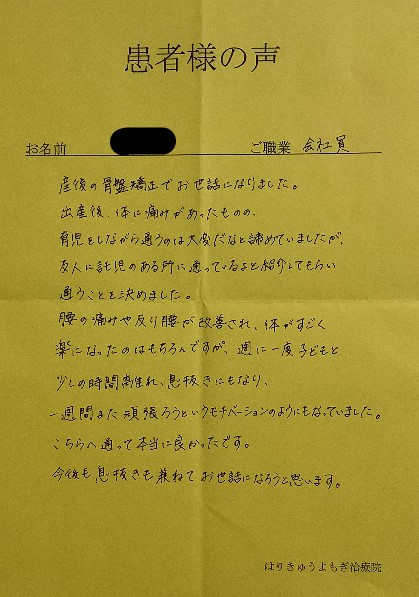 患者様の声
お名前 ご職業 会社員
産後の骨盤矯正でお世話になりました。
出産後、体に痛みがあったものの、
育児をしながら通うのは大変だなと諦めていましたが、
友人に託児のある所に通っているよと紹介してもらい
通うことを決めました。
腰の痛みや反り腰が改善され、体がすごく
楽になったのはもちろんですが、週に一度子どもと
少しの時間離れ、息抜きにもなり、
一週間また頑張ろうというモチベーションのようにもなっていました。
こちらへ通って本当に良かったです。
今後も息抜きも兼ねてお世話になろうと思います。
はりきゅうよもぎ治療院